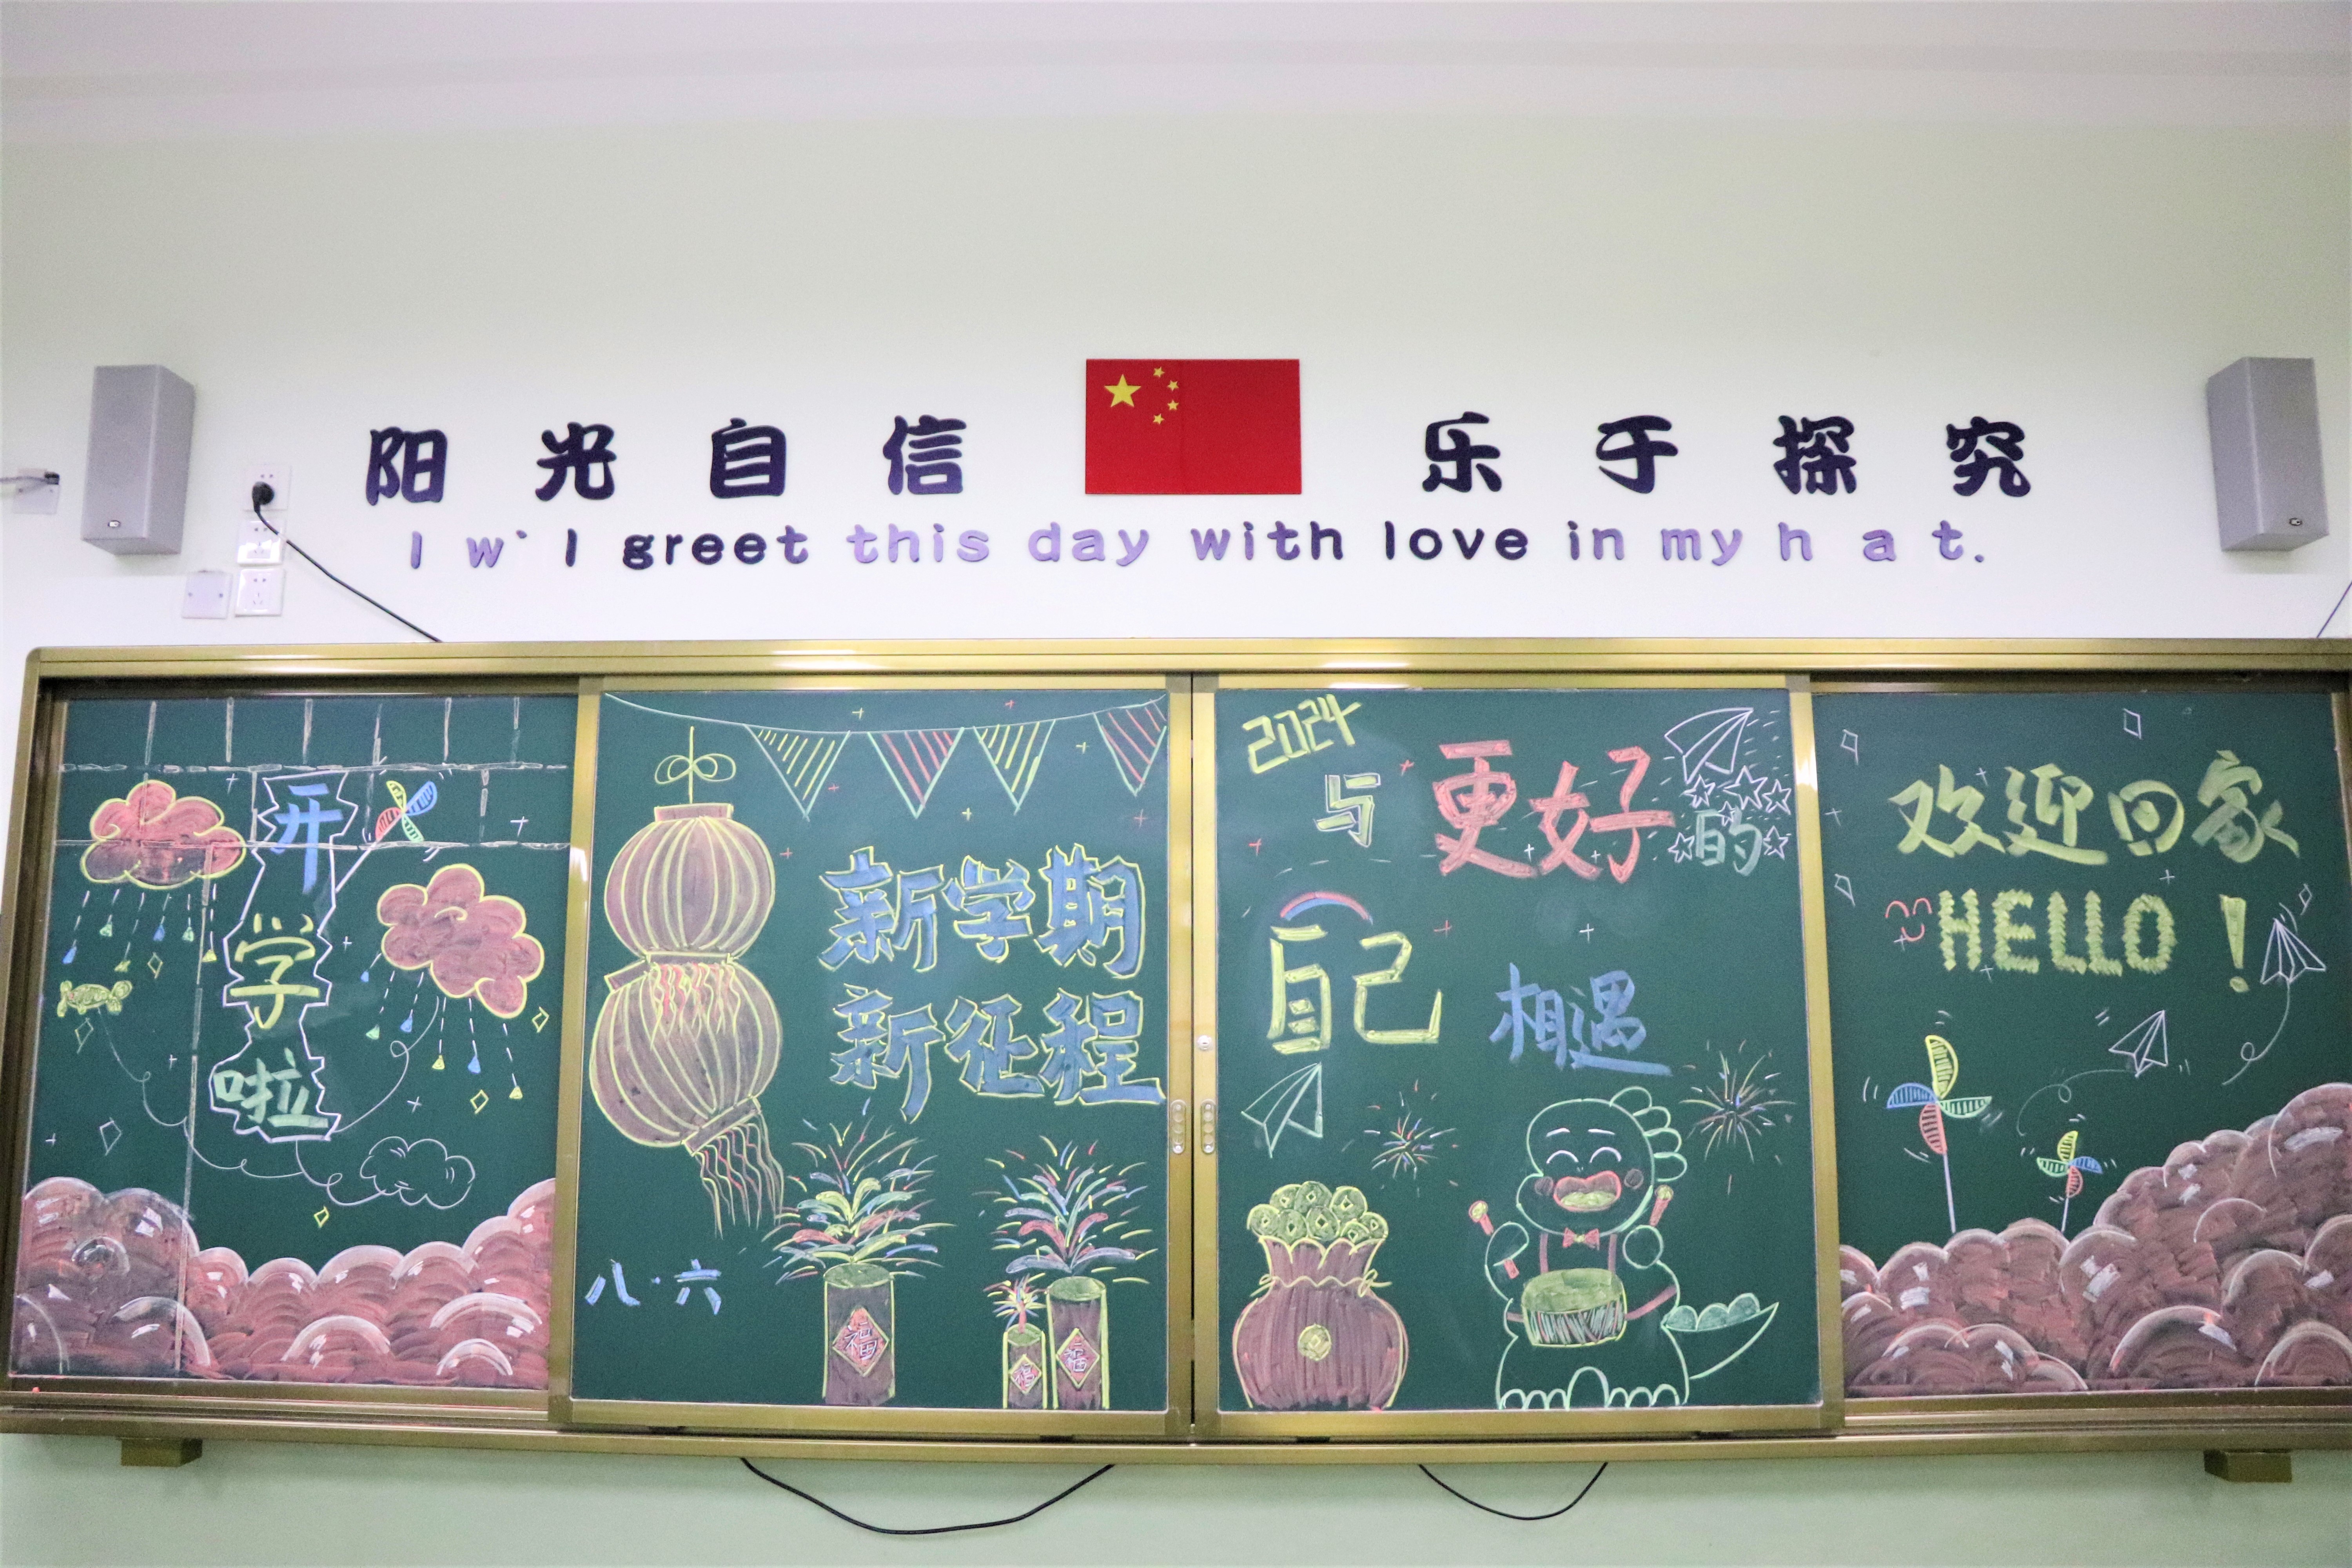 阳光自信 乐于探究
I w` l greet this day with love in my h a t.
开学啦
新学期
新征程
八·六
福
福
福
2024
与更好的
自己
相遇
欢迎回家
HELLO!